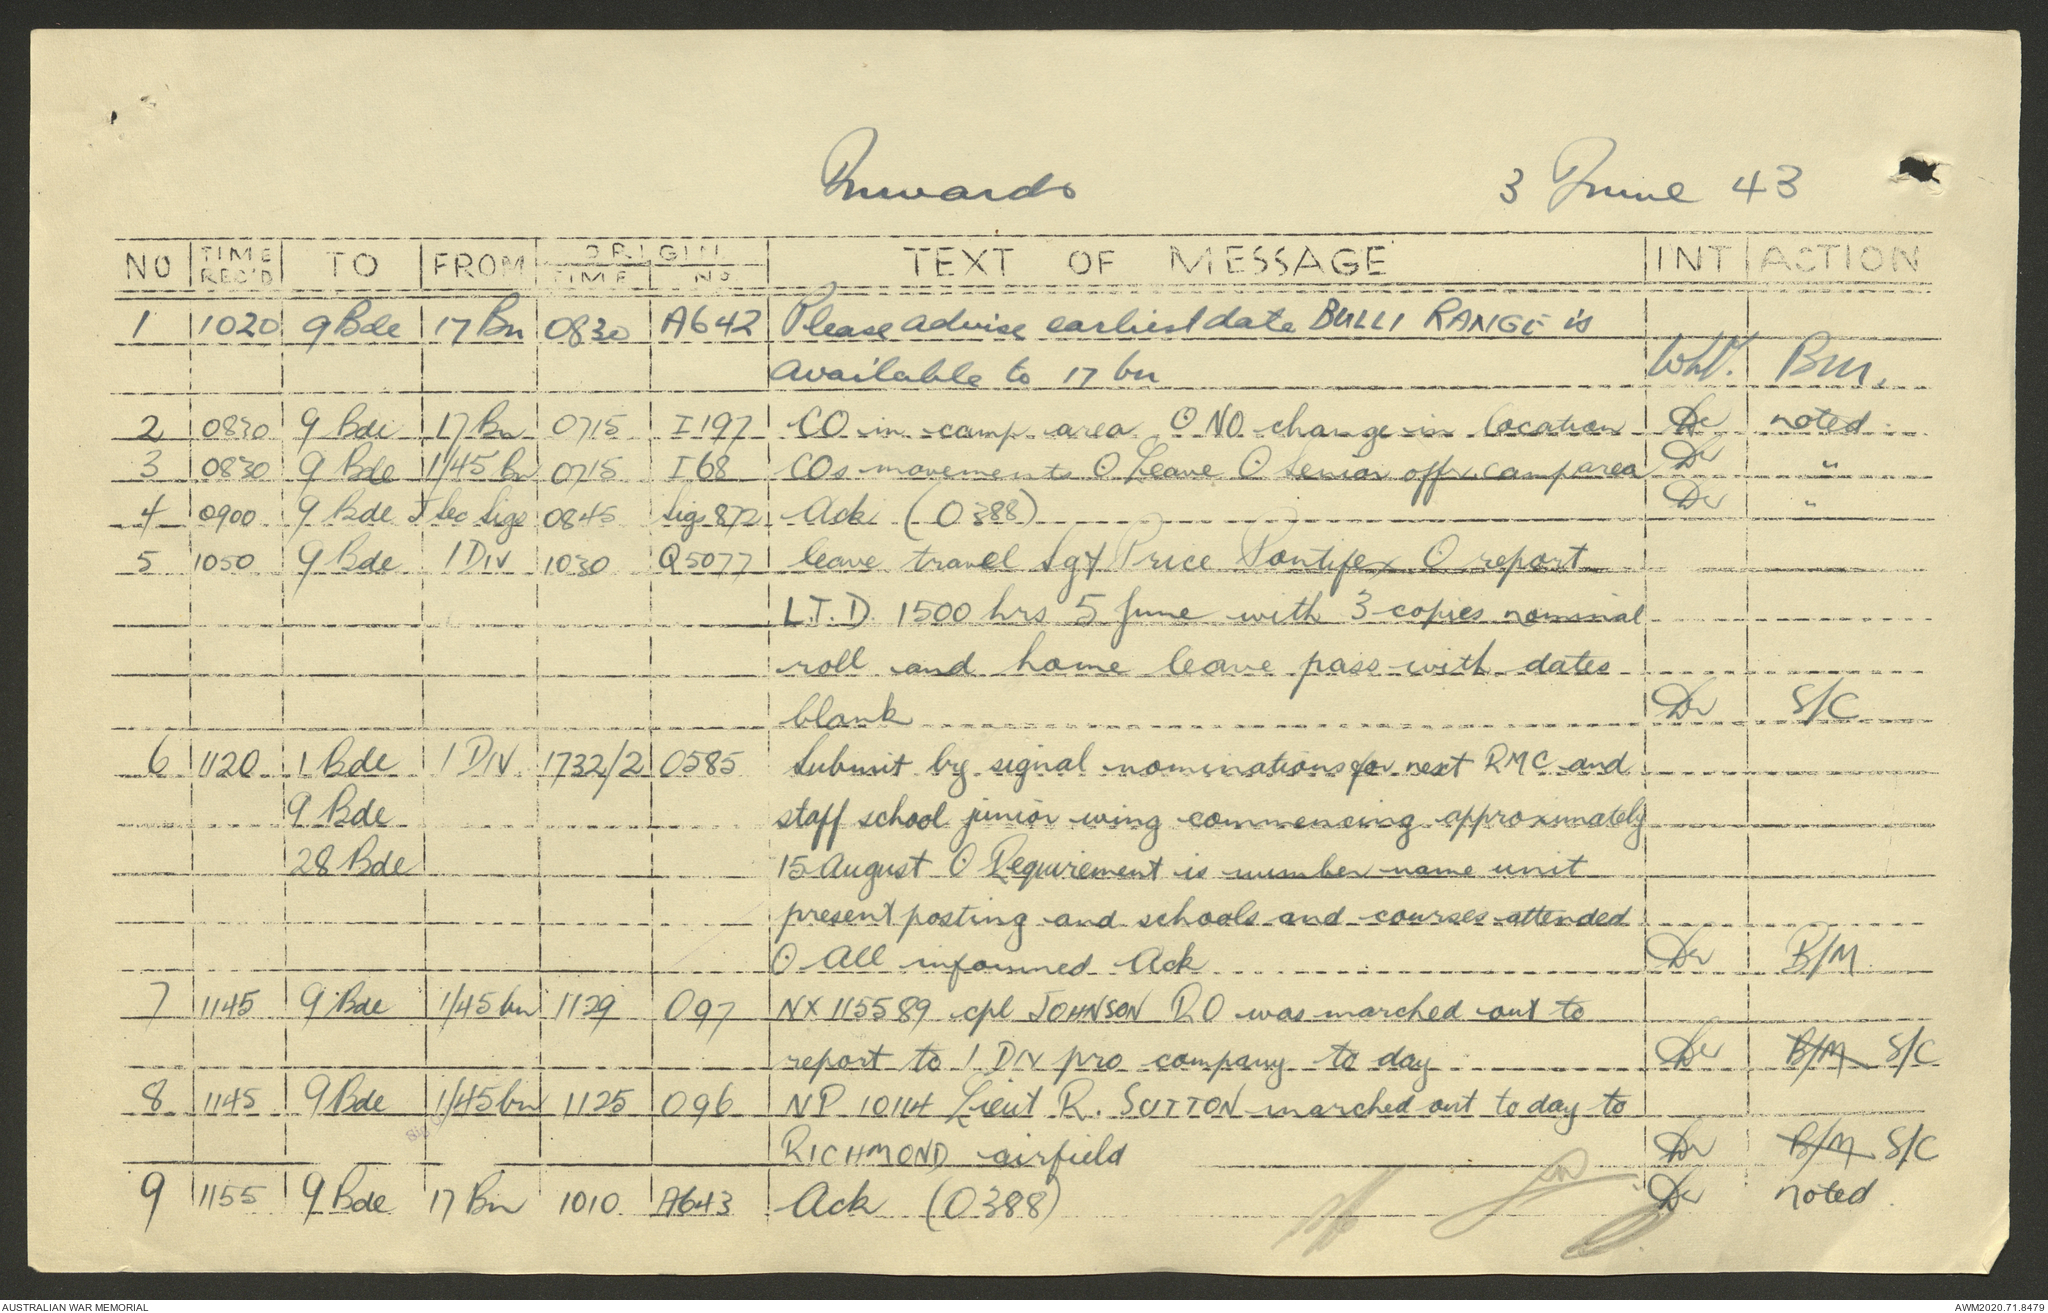 Inwards 3 June 43
NO TIME REC'D TO FROM ORIGIN TIME NO. TEXT OF MESSAGE INT ACTION
1 1020 9 Bde 17 Bn 0830 A642 Please advise earliest date BULLI RANGE is
available to 17 bn BM.
2 0830 9 Bde 17 Bn 0715 I197 CO in camp area O NO change in location noted
3 0830 9 Bde 1/45 Bn 0715 I68 COs movements O Leave O Senior offr camp area "
4 0900 9 Bde J Sec Sigs 0845 Sigs 872 Ack (O388) "
5 1050 9 Bde 1 DIV 1030 Q5077 leave travel Sgt Price Pontifex O report
L.T.D. 1500 hrs 5 June with 3 copies nominal
roll and home leave pass with dates
blank S/C
6 1120 1 Bde 1 DIV 1732/2 O585 Submit by signal nominations for next RMC and
9 Bde staff school junior wing commencing approximately
28 Bde 15 August O Requirement is number name unit
present posting and schools and courses attended
O All informed Ack B/M
7 1145 9 Bde 1/45 bn 1129 O97 NX 115589 cpl JOHNSON RO was marched out to
report to 1 DIV pro company to day B/M S/C
8 1145 9 Bde 1/45 bn 1125 O96 NP 10114 Lieut R. SUTTON marched out to day to
RICHMOND airfield B/M S/C
9 1155 9 Bde 17 Bn 1010 A643 Ack (O388) noted
AUSTRALIAN WAR MEMORIAL AWM2020.71.8479